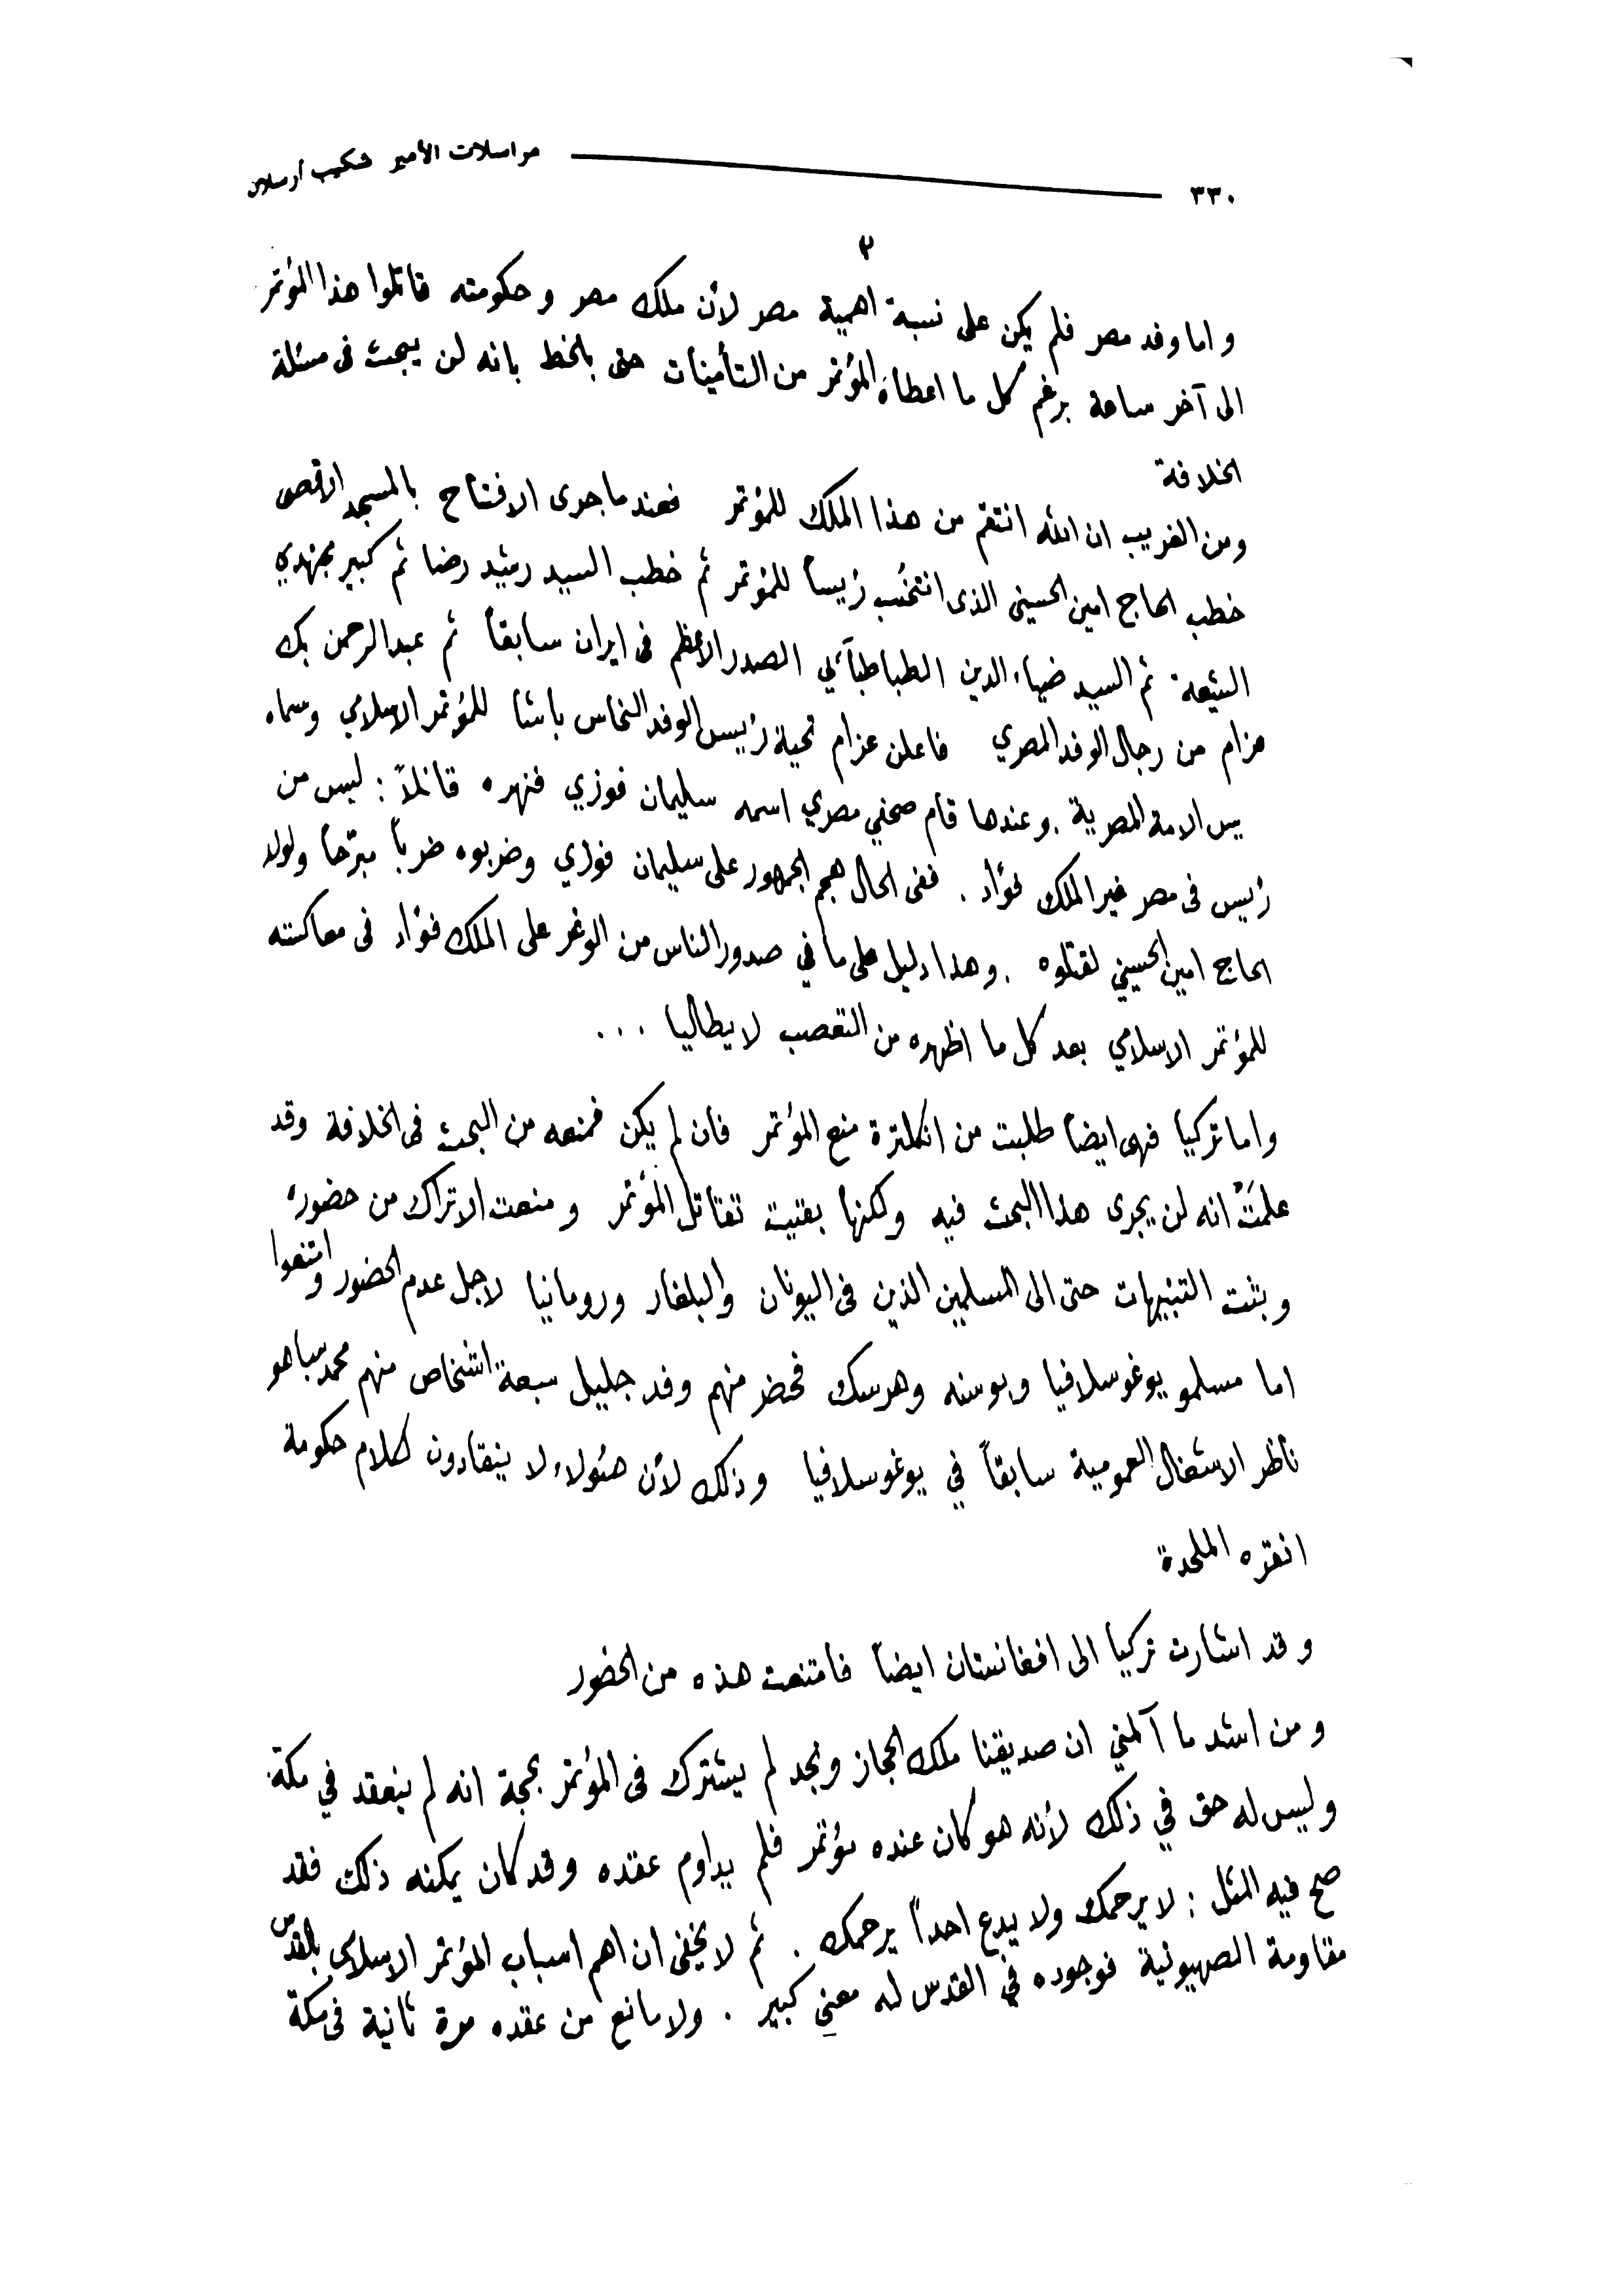 ٣٣٠ مراسلات الأمير شكيب أرسلان
٢
واما وفد مصر فلم يكن على نسبة اهمية مصر لأن ملك مصر وحكومته قاتلوا هذا المؤتمر
الى آخر ساعة برغم كل ما اعطاه المؤتمر من التأمينات حتى بالخط بانه لن يبحث فى مسئلة
الخلافة
ومن الغريب ان الله انتقم من هذا الملك للمؤتمر فعندما جرى الافتتاح بالمسجد الاقصى
خطب الحاج امين الحسينى الذى انتُخب رئيساً للمؤتمر ثم خطب السيد رشيد رضا ثم كبير مجتهدي
الشيعة ثم السيد ضياء الدين الطباطبآئي الصدر الاعظم فى ايران سابقاً ثم عبد الرحمن بك
عزام من رجال الوفد المصري فاعلن عزام تحية رئيس الوفد النحاس باشا للمؤتمر الاسلامي وسماه
يس الامة المصرية . وعندها قام صحفي مصري اسمه سليمان فوزي فنهره قائلاً : ليس من
رئيس فى مصر غير الملك فؤاد . ففى الحال هجم الجمهور على سليمان فوزي وضربوه ضرباً مبرّحاً ولولا
الحاج امين الحسيني لقتلوه . وهذا دليل على ما في صدور الناس من الوغر على الملك فؤاد فى معاكسته
للمؤتمر الاسلامي بعد كل ما اظهره من التعصب لايطاليا ...
واما تركيا فهى ايضاً طلبت من انكلترة منع المؤتمر فان لم يكن فمنعه من البحث فى الخلافة وقد
علمَتْ انه لن يجرى هذا البحث فيه ولكنها بقيت تقاتل المؤتمر ومنعت الاتراك من حضوره
وبثت التنبيهات حتى الى المسلمين الذين فى اليونان والبلغار ورومانيا لاجل عدم الحضور وامتنعوا
اما مسلمو يوغوسلافيا وبوسنه وهرسك فحضر منهم وفد جليل سبعة اشخاص منهم محمد سباهو
ناظر الاشغال العمومية سابقاً في يوغوسلافيا وذلك لأن هئولاء لا ينقادون لكلام حكومة
انقره الملحدة
وقد اشارت تركيا الى افغانستان ايضاً فامتنعت هذه من الحضور
ومن اشد ما آلمني ان صديقنا ملك الحجاز ونجد لم يشترك فى المؤتمر بحجة انه لم ينعقد في مكة
وليس له حق في ذلك لأنه هو كان عنده مؤتمر فلم يداوم عقده وقد كان يمكنه ذلك فقد
صح فيه المثل : لا يرحمك ولا يدع احداً يرحمك . ثم لا يخفى ان اهم اسباب المؤتمر الاسلامى بالقدس
مقاومة الصهيونية فوجوده في القدس له معنى كبير . ولا مانع من عقده مرة ثانية فى مكة